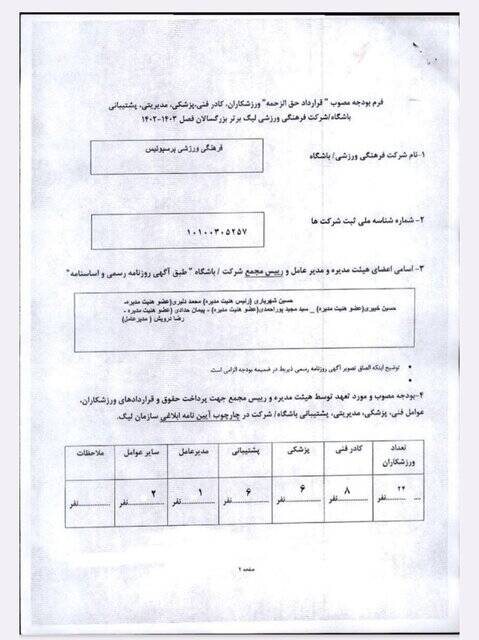 فرم بودجه مصوب " قرارداد حق الزحمه" ورزشکاران، کادر فنی،پزشکی، مدیریتی، پشتیبانی
باشگاه/شرکت فرهنگی ورزشی لیگ برتر بزرگسالان فصل ۱۴۰۳-۱۴۰۲
۱-نام شرکت فرهنگی ورزشی/ باشگاه
فرهنگی ورزشی پرسپولیس
۲- شماره شناسه ملی ثبت شرکت ها
۱۰۱۰۰۳۰۵۲۵۷
۳- اسامی اعضای هیئت مدیره و مدیر عامل و رییس مجمع شرکت / باشگاه " طبق آگهی روزنامه رسمی و اساسنامه"
حسین شهریاری (رئیس هئیت مدیره) محمد دلیری(عضو هئیت مدیره-
حسین خبیری(عضو هئیت مدیره) _ سید مجید پوراحمدی(عضو هئیت مدیره) - پیمان حدادی (عضو هئیت مدیره -
رضا درویش ( مدیرعامل)
توضیح اینکه الصاق تصویر آگهی روزنامه رسمی ذیربط در ضمیمه بودجه الزامی است.
۴-بودجه مصوب و مورد تعهد توسط هیئت مدیره و رییس مجمع جهت پرداخت حقوق و قراردادهای ورزشکاران،
عوامل فنی، پزشکی، مدیریتی، پشتیبانی باشگاه/ شرکت در چارچوب آیین نامه ابلاغی سازمان لیگ.
تعداد ورزشکاران کادر فنی پزشکی پشتیبانی مدیرعامل سایر عوامل ملاحظات
۲۴ نفر ۸ نفر ۶ نفر ۶ نفر ۱ نفر ۲ نفر نفر
صفحه ۱